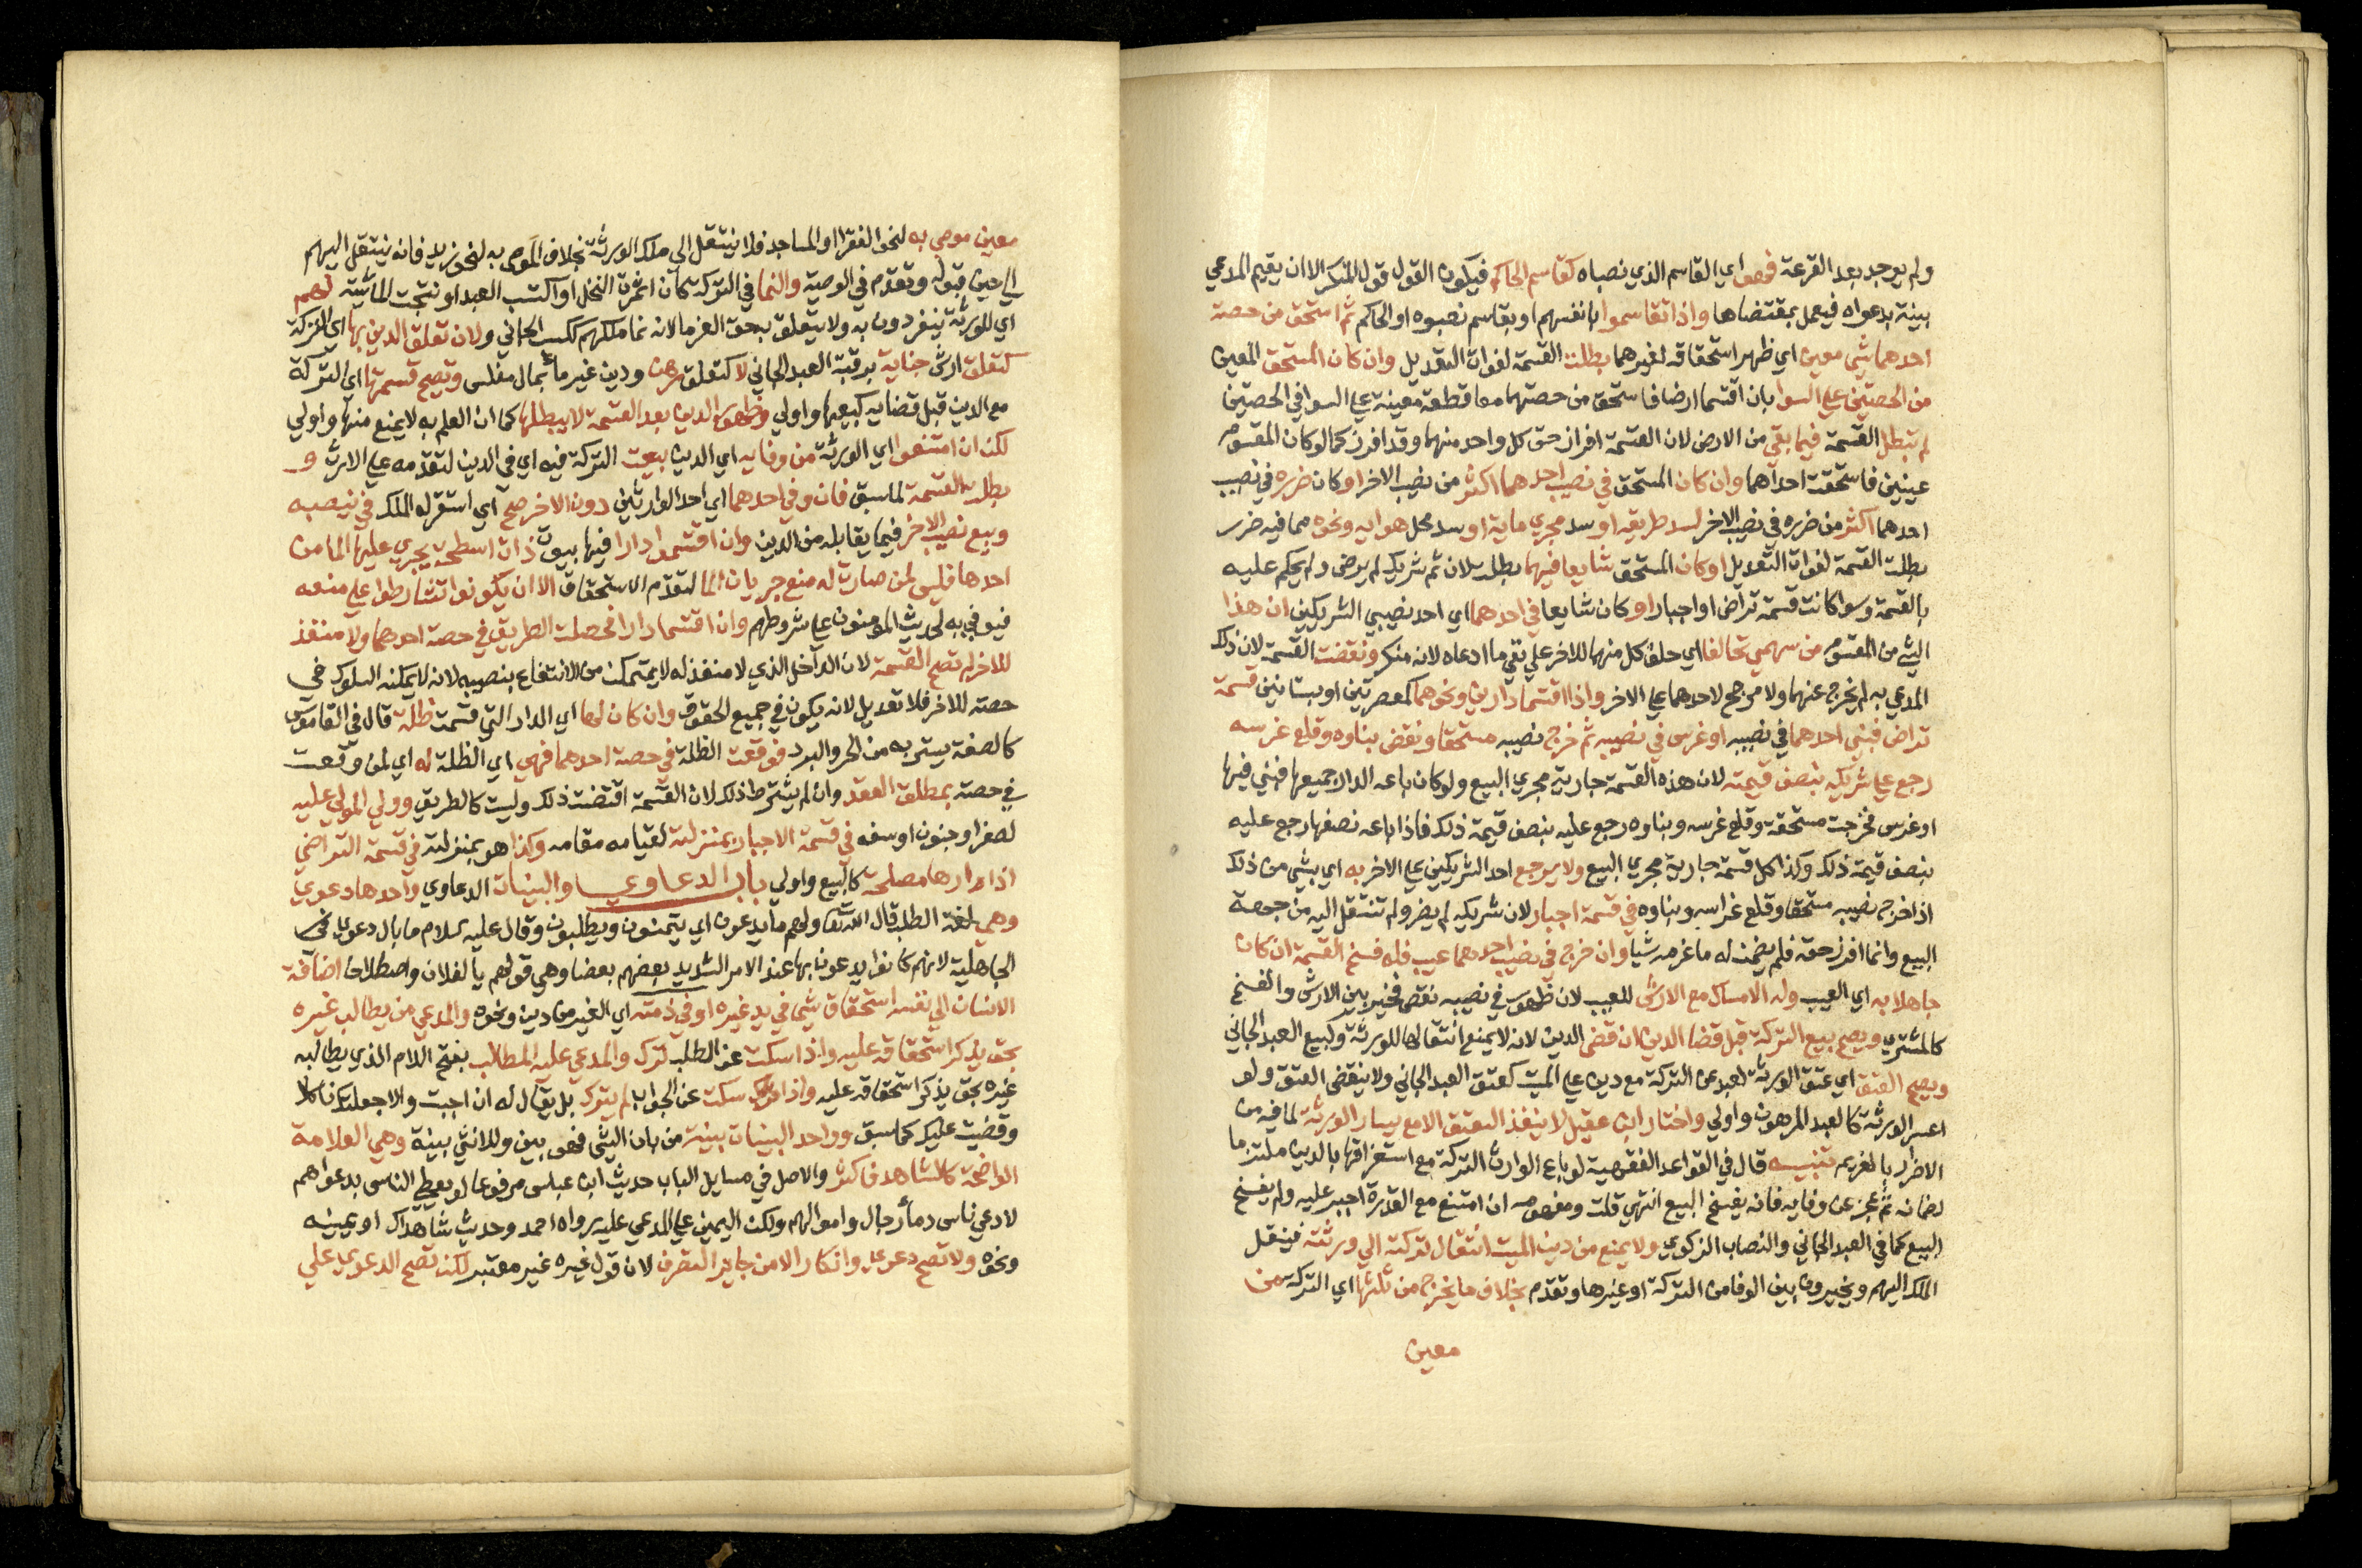 ولم يوجد بعد القرعة فهو اي القاسم الذي نصباه كقاسم الحاكم فيكون القول قول المنكر الا ان يقيم المدعي
بينة بدعواه فيعمل بمقتضاها واذا تقاسموا بانفسهم او بقاسم نصبوه او الحاكم ثم استحق من حصة
احدهما شي معين اي ظهر استحقاقه لغيرهما بطلت القسمة لفوات التعديل وان كان المستحق المعين
من الحصتين علي السوا بان اقتسما ارضا فاستحق من حصتهما معا قطعة معينة علي السوا في الحصتين
لم تبطل القسمة فيما بقي من الارض لان القسمة افراز حق كل واحد منهما وقد افرز كما لو كان المقسوم
عينين فاستحقت احداهما وان كان المستحق في نصيب احدهما اكثر من نصيب الاخر او كان ضرره في نصيب
احدهما اكثر من ضرره في نصيب الاخر لسد طريقه او سد مجري مايه او سد محل هوايه ونحوه مما فيه ضرر
بطلت القسمة لفوات التعديل او كان المستحق شايعا فيهما بطلت لان ثم شريك لم يرض ولم يحكم عليه
بالقسمة وسوا كانت قسمة تراض او اجبار او كان شايعا في احدهما اي احد نصيبي الشريكين ان هذا
الشي من المقسوم من سهمي تحالفا اي حلف كل منهما للاخر علي نفي ما ادعاه لانه منكر ونقضت القسمة لان ذلك
المدعي به لم يخرج عنهما ولا مرجح لاحدهما علي الاخر واذا اقتسما دارين ونحوهما كمعصرتين او بستانين قسمة
تراض فبني احدهما في نصيبه او غرس في نصيبه ثم خرج نصيبه مستحقا ونقض بناوه وقلع غرسه
رجع علي شريكه بنصف قيمته لان هذه القسمة جارية مجري البيع ولو كان باعه الدار جميعها فبني فيها
او غرس فخرجت مستحقة وقلع غرسه وبناوه رجع عليه بنصف قيمة ذلك فاذا باعه نصفها رجع عليه
بنصف قيمة ذلك وكذا كل قسمة جارية مجري البيع ولا يرجع احد الشريكين علي الاخر به اي بشي من ذلك
اذا خرج نصيبه مستحقا وقلع غراسه وبناوه في قسمة اجبار لان شريكه لم يضر ولم تنتقل اليه من جهة
البيع وانما افرز حقه فلم يضمن له ما غرمه شيا وان خرج في نصيب احدهما عيب فله فسخ القسمة ان كان
جاهلا به اي العيب وله الامساك مع الارش للعيب لان ظهوره في نصيبه نقص فخير بين الارش والفسخ
كالمشتري ويصح بيع التركة قبل قضا الدين ان قضي الدين لانه لا يمنع انتقالها للورثة ولبيع العبد الجاني
ويصح العتق اي عتق الورثة لعبد من التركة مع دين علي الميت كعتق العبد الجاني ولا ينقض العتق ولو
اعسر الورثة كالعبد المرهون واولي واختار ابن عقيل لا ينفذ العتق الا مع يسار الورثة لما فيه من
الاضرار بالغريم تنبيه قال في القواعد الفقهية لو باع الوارث التركة مع استغراقها بالدين ملتزما
لضمانه ثم عجز عن وفايه فانه يفسخ البيع انتهي قلت ومفهومه ان امتنع مع القدرة اجبر عليه ولم يفسخ
البيع كما في العبد الجاني والنصاب الزكوي ولا يمنع من دين الميت انتقال تركته الي ورثته فينتقل
الملك اليهم ويخيرون بين الوفا من التركة او غيرها وتقدم بخلاف ما يخرج من ثلثها اي التركة من
معين
معين موصي به لنحو الفقرا او المساجد فلا ينتقل الي ملك الورثة بخلاف الموصي به لنحو زيد فانه ينتقل اليهم
الي حين قبوله وتقدم في الوصية والنما في التركة كان اثمرت النخل او اكتسب العبد او نتجت الماشية لهم
اي للورثة ينفردون به ولا يتعلق به حق الغرما لانه نما ملكهم ككسب الجاني ولان تعلق الدين بها اي التركة
كتعلق ارش جناية برقبة العبد الجاني لا كتعلق رهن ودين غير ما بمال مفلس وتصح قسمتها اي التركة
مع الدين قبل قضايه كبيعها واولي وظهور الدين بعد القسمة لا يبطلها كما ان العلم به لا يمنع منها واولي
لكن ان امتنعوا اي الورثة من وفايه اي الدين بيعت التركة فيه اي في الدين لتقدمه علي الارث و
بطلت القسمة لما سبق فان وفي احدهما اي احد الوارثين دون الاخر صح اي استقر له الملك في نصيبه
وبيع نصيب الاخر فيما يقابله من الدين وان اقتسموا دارا فيها بيوت ذات اسطحة يجري عليها الما من
احدها فليس لمن صارت له منع جريان الما لتقدم الاستحقاق الا ان يكونوا تشارطوا علي منعه
فيوفي به لحديث المومنون علي شروطهم وان اقتسما دارا فحصلت الطريق في حصة احدهما ولا منفذ
للاخر لم تصح القسمة لان الداخل الذي لا منفذ له لا يتمكن من الانتفاع بنصيبه لانه لا يمكنه السلوك في
حصته للاخر فلا تعديل لانه يكون في جميع الحقوق وان كان لها اي الدار التي قسمت ظلة قال في القاموس
كالصفة يستتر به من الحر والبرد فوقعت الظلة في حصة احدهما فهي اي الظلة له اي لمن وقعت
في حصته بمطلق العقد وان لم يشترط ذلك لان القسمة اقتضت ذلك وليست كالطريق وولي المولي عليه
لصغر او جنون او سفه في قسمة الاجبار بمنزلته لقيامه مقامه وكذا هو بمنزلته في قسمة التراضي
اذا راها مصلحة كالبيع واولي باب الدعاوي والبينات الدعاوي واحدها دعوي
وهي لغة الطلب قال الله تعا ولهم ما يدعون اي يتمنون ويطلبون وقال عليه السلام ما بال دعوي
الجاهلية لانهم كانوا يدعون بها عند الامر الشديد بعضهم بعضا وهي قولهم يا لفلان واصطلاحا اضافة
الانسان الي نفسه استحقاق شي في يد غيره او في ذمته اي الغير من دين ونحوه والمدعي من يطالب غيره
بحق يذكر استحقاقه عليه واذا سكت عن الطلب ترك والمدعي عليه المطالب بفتح اللام الذي يطالبه
غيره بحق يذكر استحقاقه عليه واذا سكت عن الجواب لم يترك بل يقال له ان اجبت والا جعلتك ناكلا
وقضيت عليك كما سبق وواحد البينات بينة من بان الشي فهو بين وللانثي بينة وهي العلامة
الواضحة كالشاهد فاكثر والاصل في مسايل الباب حديث ابن عباس مرفوعا لو يعطي الناس بدعواهم
لادعي ناس دما رجال واموالهم ولكن اليمين علي المدعي عليه رواه احمد وحديث شاهداك او يمينه
ونحوه ولا تصح دعوي وانكار الا من جايز التصرف لان قول غيره غير معتبر لكن تصح الدعوي علي